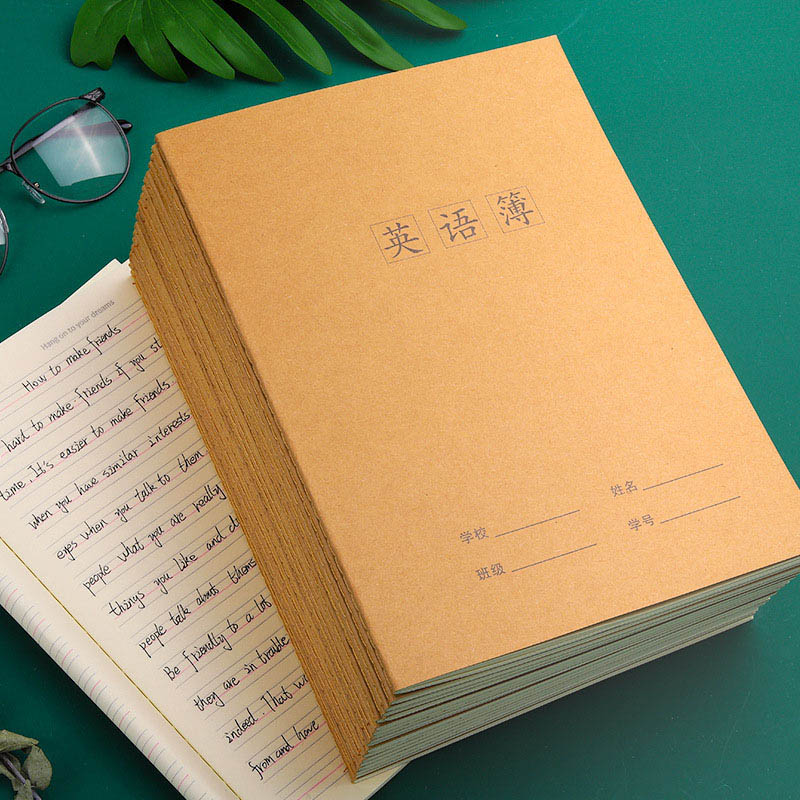 英语簿
学校 姓名
班级 学号
Hang on to your dreams
How to make friends
hard to make friends if you
time. It's easier to make friends
when you have similar interests
eyes when you talk to them
people what you are really
things you like and
people talk about
Be friendly to a lot
they are in trouble
indeed. That's
from and have